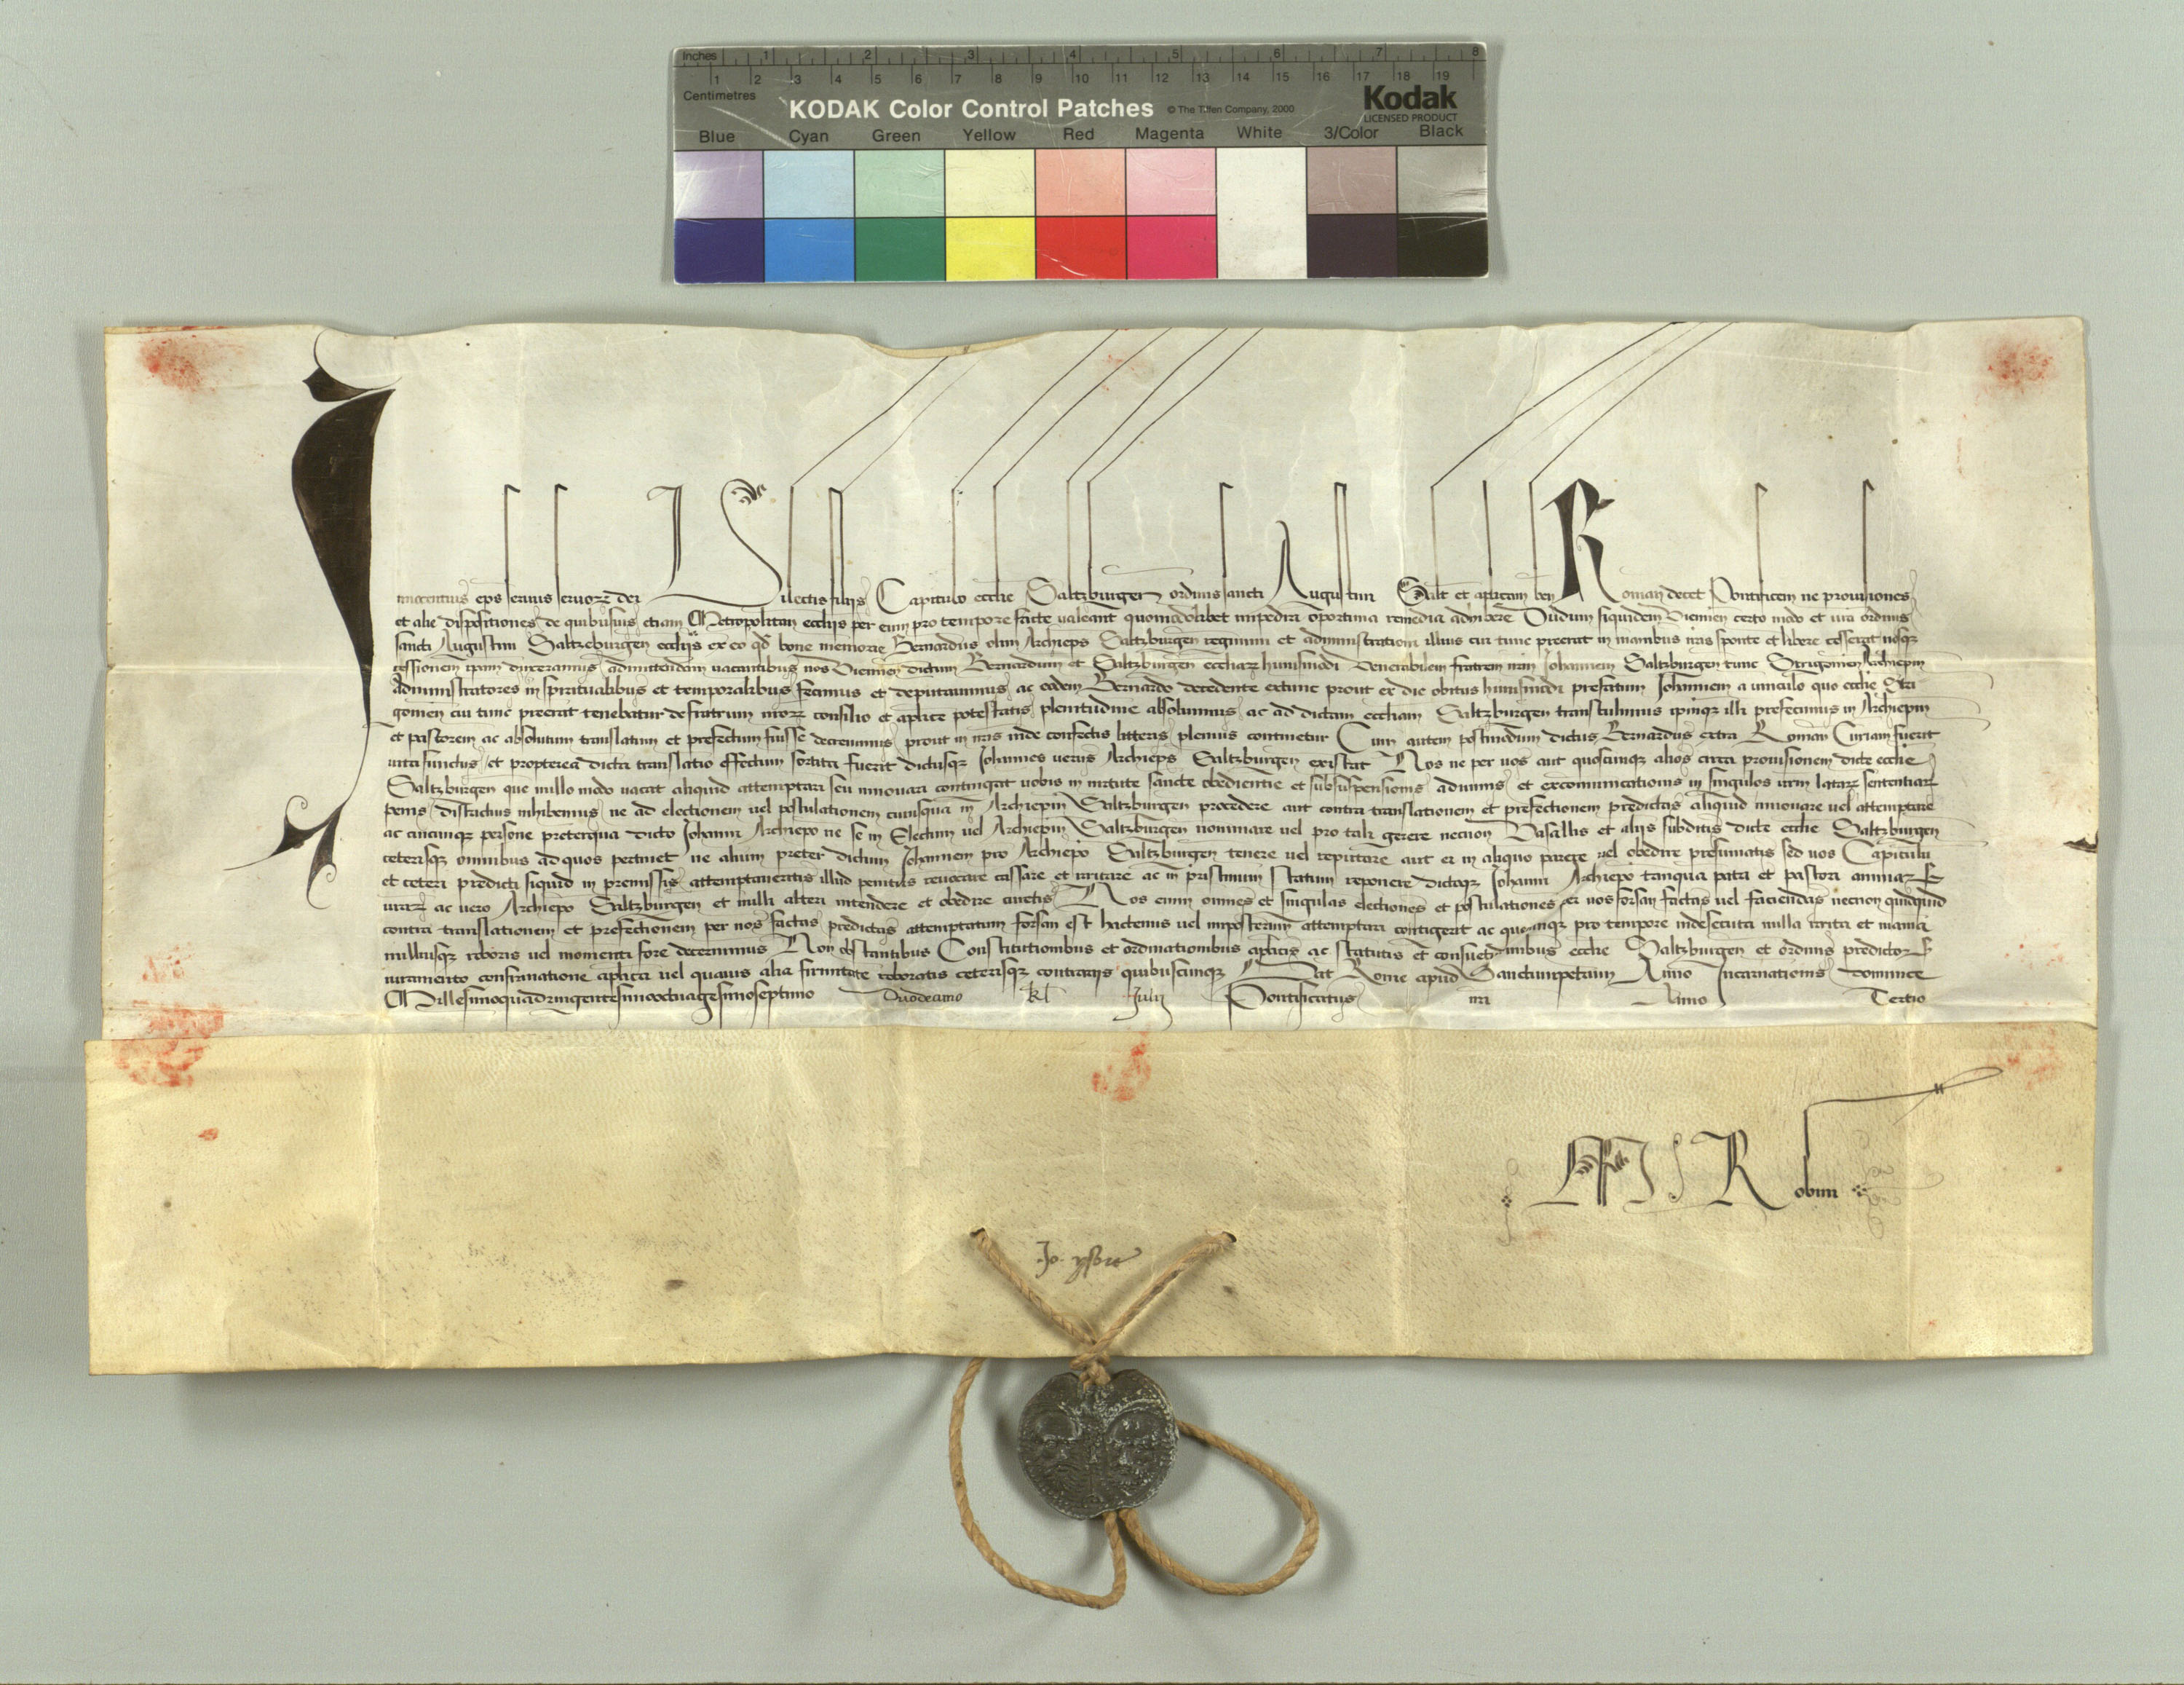 Inches 1 2 3 4 5 6 7 8
1 2 3 4 5 6 7 8 9 10 11 12 13 14 15 16 17 18 19
Centimetres
KODAK Color Control Patches © The Tiffen Company, 2000 Kodak
LICENSED PRODUCT
Blue Cyan Green Yellow Red Magenta White 3/Color Black
Innocentius eps seruus seruorꝝ dei Dilectis filiis Capitulo ecclie Saltzburgen ordinis sancti Augustini Salt et aplicam ben Roman decet Pontificem ne prouisiones
et alie dispositiones de quibusuis etiam Metropolitan ecclijs per eum pro tempore facte ualeant quomodolibet impediri oportuna remedia adhibere Dudum siquidem Viennen certo modo et ura ordinis
sancti Augustini Saltzeburgen ecclijs ex eo qd bone memorie Bernardus olim Archieps Saltzburgen regimini et administrationi illius cui tunc preerat in manibus nris sponte et libere cesserat nosqꝫ
cessionem ipam duxeramus admittendam uacantibus nos Viennen dictum Bernardum et Saltzburgen eccliarꝝ huiusmodi Venerabilem fratrem nrm Johannem Saltzburgen tunc Strigonien Archiepm
Administratores in spiritualibus et temporalibus fecimus et deputauimus ac eodem Bernardo decedente extunc prout ex die obitus huiusmodi prefatum Johannem a uinculo quo ecclie Stri
gonien cui tunc preerat tenebatur de fratrum nrorꝝ consilio et aplice potestatis plenitudine absoluimus ac ad dictam eccliam Saltzburgen transtulimus ipmqꝫ illi prefecimus in Archiepm
et pastorem ac absolutum translatum et prefectum fuisse decreuimus prout in nris inde confectis litteris plenius continetur Cum autem postmodum dictus Bernardus extra Roman Curiam fuerit
uita functus et propterea dicta translatio effectum sortita fuerit dictusqꝫ Johannes uerus Archieps Saltzburgen existat Nos ne per uos aut quoscunqꝫ alios circa prouisionem dicte ecclie
Saltzburgen que nullo modo uacat aliquid attemptari seu innouari contingat uobis in uirtute sancte obedientie et sub suspensionis a diuinis et excommunicationis in singulos urm latarꝝ sententiarꝝ
penis districtius inhibemus ne ad electionem uel postulationem cuiusqua in Archiepm Saltzburgen procedere aut contra translationem et prefectionem predictas aliquid innouare uel attemptare
ac cuicunqꝫ persone preterqua dicto Johanni Archiepo ne se in Electum uel Archiepm Saltzburgen nominare uel pro tali gerere necnon Vasallis et alijs subditis dicte ecclie Saltzburgen
ceterisqꝫ omnibus ad quos pertinet ne alium preter dictum Johannem pro Archiepo Saltzburgen tenere uel reputare aut ei in aliquo parere uel obedire presumatis sed uos Capitulu
et ceteri predicti siquid in premissis attemptaueritis illud penitus reuocare cassare et irritare ac in pristinum statum reponere dictoqꝫ Johanni Archiepo tanqua patri et pastori animarꝝ
urarꝝ ac uero Archiepo Saltzburgen et nulli alteri intendere et obedire curetis Nos enim omnes et singulas electiones et postulationes per uos forsan factas uel faciendas necnon quidquid
contra translationem et prefectionem per nos factas predictas attemptatum forsan est hactenus uel imposterum attemptari contigerit ac quecunqꝫ pro tempore inde secuta nulla irrita et inania
nulliusqꝫ roboris uel momenti fore decernimus Non obstantibus Constitutionibus et ordinationibus aplicis ac statutis et consuetudinibus ecclie Saltzburgen et ordinis predictorꝝ
iuramento confirmatione aplica uel quauis alia firmitate roboratis ceterisqꝫ contrarijs quibuscunqꝫ Dat Rome apud Sanctumpetrum Anno Incarnationis dominice
Millesimoquadringentesimooctuagesimoseptimo Duodecimo kl Julij Pontificatus nri Anno Tertio
Robini
Jo. ysbre